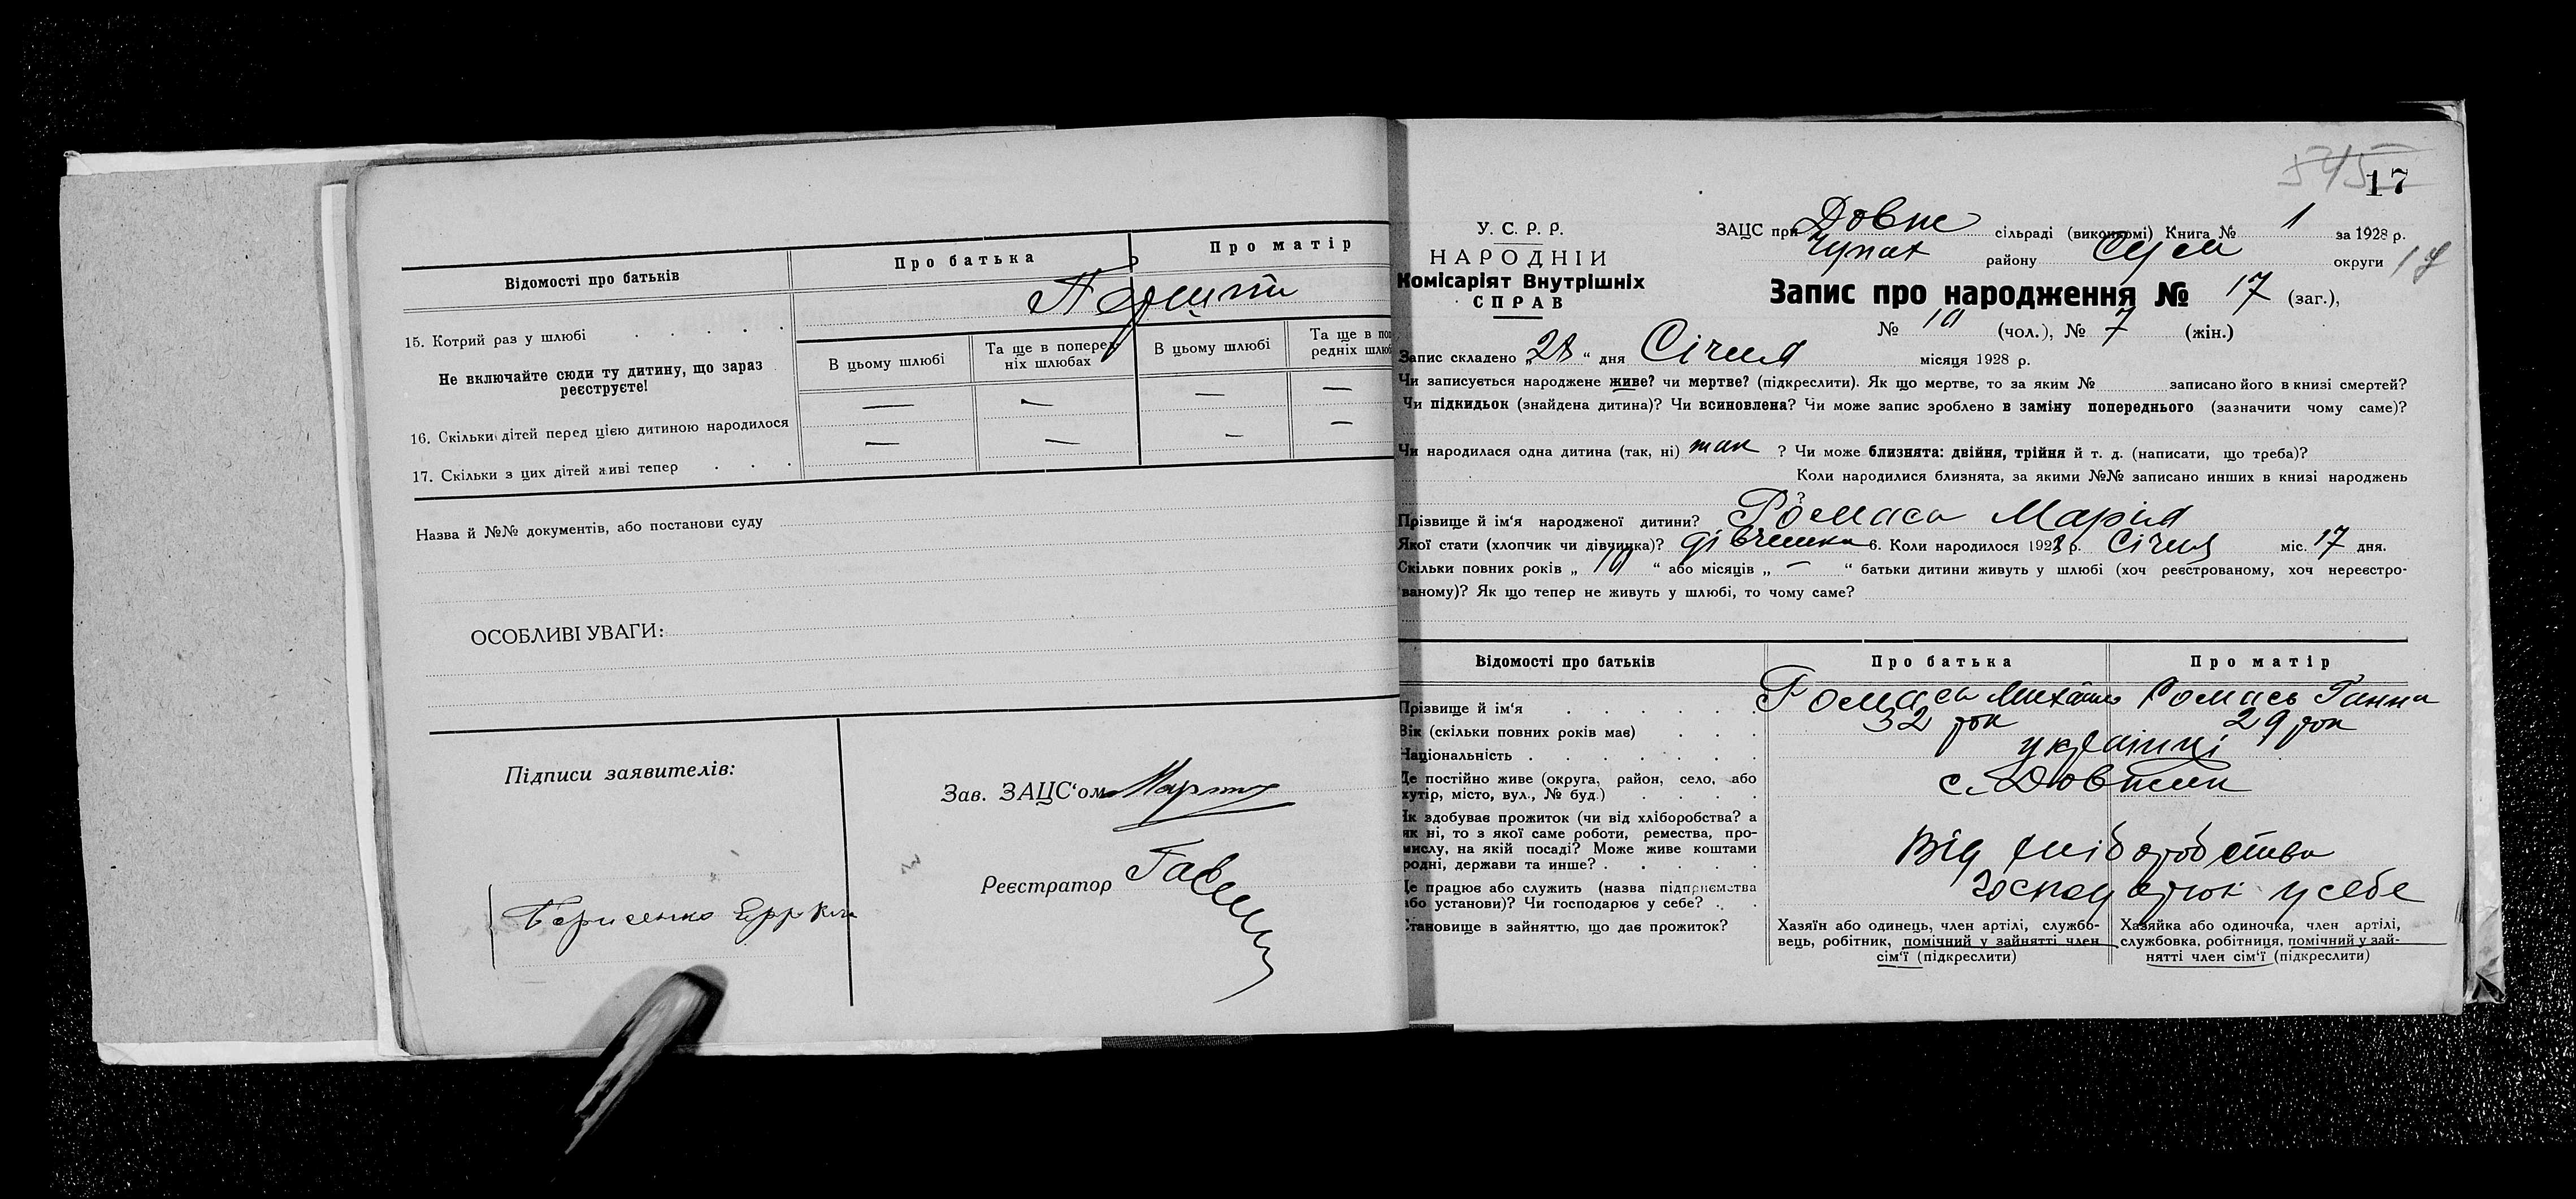 Відомості про батьків
Про батька
Про матір
15. Котрий раз у шлюбі
Не включайте сюди ту дитину, що зараз
реєструєте!
В цьому шлюбі
Та ще в поперед-
ніх шлюбах
В цьому шлюбі
Та ще в по
редніх шлю
16. Скільки дітей перед цією дитиною народилося
— — — —
17. Скільки з цих дітей живі тепер
— — — —
Назва й №№ документів, або постанови суду
ОСОБЛИВІ УВАГИ:
Підписи заявителів:
Борисенко
Зав. ЗАЦС‘ом
Реєстратор
17
У. С. Р. Р.
НАРОДНІЙ
Комісаріят Внутрішніх
СПРАВ
ЗАЦС при Довж сільраді (виконкомі) Книга № 1 за 1928 р.
району округи
Запис про народження № 17 (заг.),
№ 10 (чол.), № 7 (жін.)
Запис складено „28“ дня Січня місяця 1928 р.
Чи записується народжене живе? чи мертве? (підкреслити). Як що мертве, то за яким № записано його в книзі смертей?
Чи підкидьок (знайдена дитина)? Чи всиновлена? Чи може запис зроблено в заміну попереднього (зазначити чому саме)?
Чи народилася одна дитина (так, ні) так ? Чи може близнята: двійня, трійня й т. д. (написати, що треба)?
Коли народилися близнята, за якими №№ записано инших в книзі народжень
?
Прізвище й ім‘я народженої дитини? Ромась Марія
Якої стати (хлопчик чи дівчинка)? дівчинка 6. Коли народилося 1928 р. Січня міс. 17 дня.
Скільки повних років „10“ або місяців „—“ батьки дитини живуть у шлюбі (хоч реєстрованому, хоч нереєстро-
ваному)? Як що тепер не живуть у шлюбі, то чому саме?
Відомості про батьків
Про батька
Про матір
Прізвище й ім‘я
Ромась Михайло
Ромась Ганна
Вік (скільки повних років має)
32 рок
29 рок
Національність
українці
Де постійно живе (округа, район, село, або
хутір, місто, вул., № буд.)
с.
Як здобуває прожиток (чи від хліборобства? а
як ні, то з якої саме роботи, ремества, про-
мислу, на якій посаді? Може живе коштами
родні, держави та инше?
Від хліборобства
Де працює або служить (назва підприємства
або установи)? Чи господарює у себе?
господарюк у себе
Становище в зайняттю, що дає прожиток?
Хазяїн або одинець, член артілі, службо-
вець, робітник, помічний у зайнятті член
сім‘ї (підкреслити)
Хазяйка або одиночка, член артілі,
службовка, робітниця, помічний у зай-
нятті член сім‘ї (підкреслити)